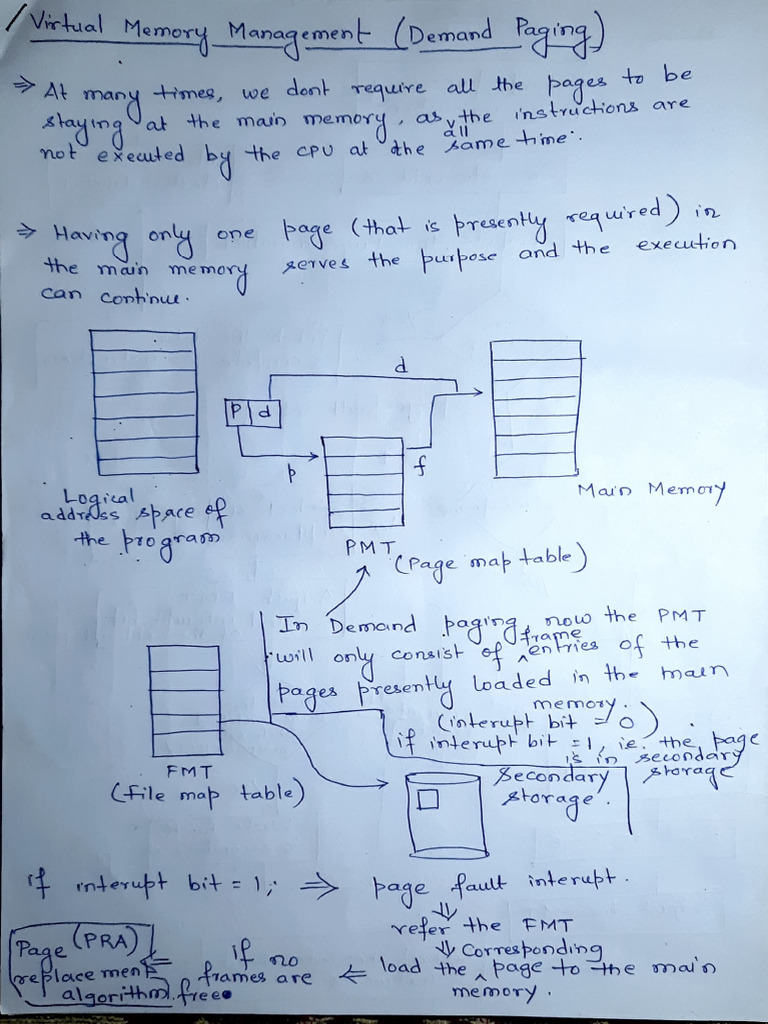 Virtual Memory Management (Demand Paging)
⇒ At many times, we dont require all the pages to be
staying at the main memory, as all the instructions are
not executed by the CPU at the same time.
⇒ Having only one page (that is presently required) in
the main memory serves the purpose and the execution
can continue.
d
p d
p
f
Logical
address space of
the program
Main Memory
PMT
(Page map table)
In Demand paging, now the PMT
will only consist of frame entries of the
pages presently loaded in the main
memory.
(interupt bit = 0)
if interupt bit = 1, ie. the page
is in secondary
storage
FMT
(file map table)
Secondary
storage.
if interupt bit = 1; ⇒ page fault interupt.
⇓
refer the FMT
⇓
load the corresponding page to the main
memory.
⇐ if no
frames are
free
⇐ Page (PRA)
replacement
algorithm.